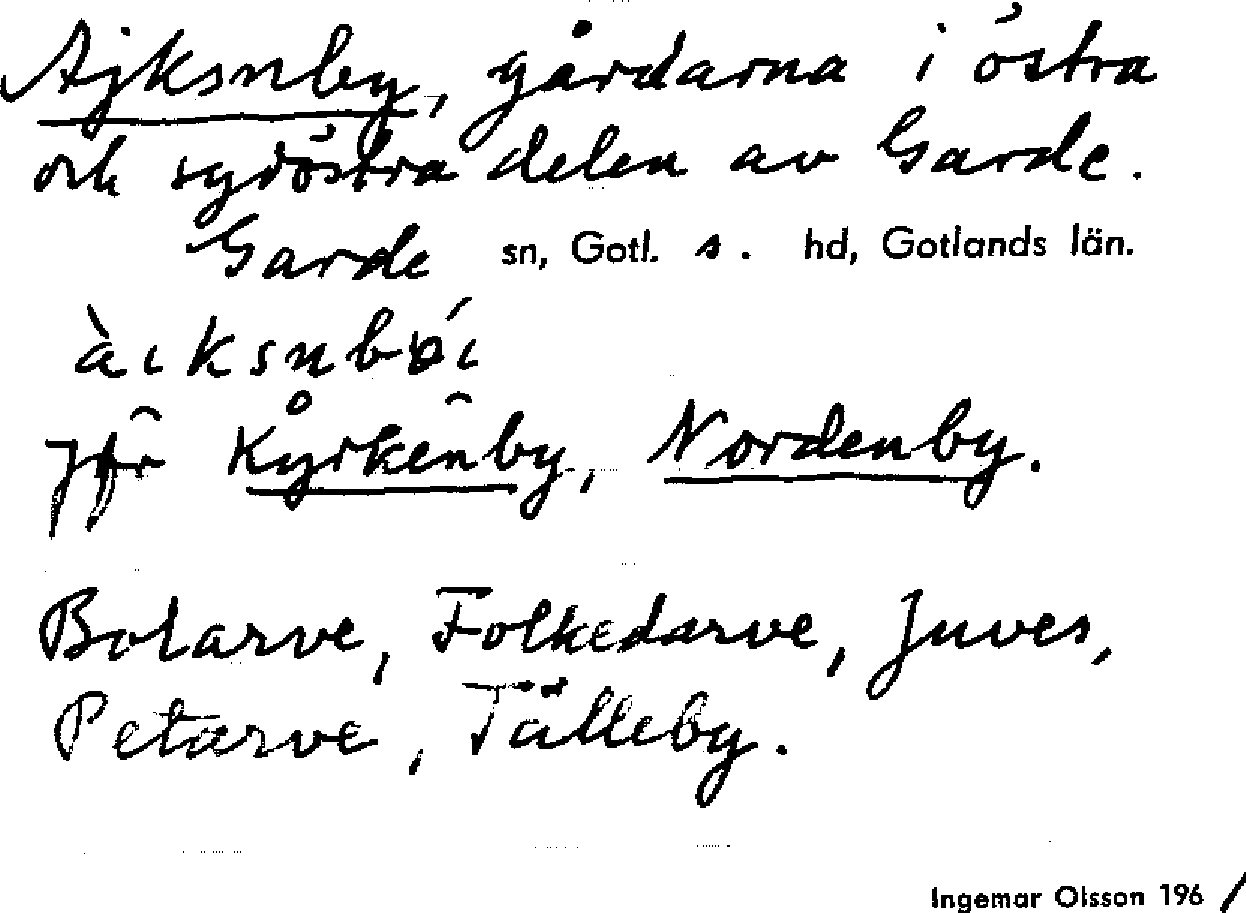 Ajksnby, gårdarna i östra
och sydöstra delen av Garde.
Garde sn, Gotl. s. hd, Gotlands län.
àıksnbǿı
Jfr Kyrkenby, Nordenby.
Botarve, Folkedarve, Juves,
Petarve, Tälleby.
Ingemar Olsson 196/